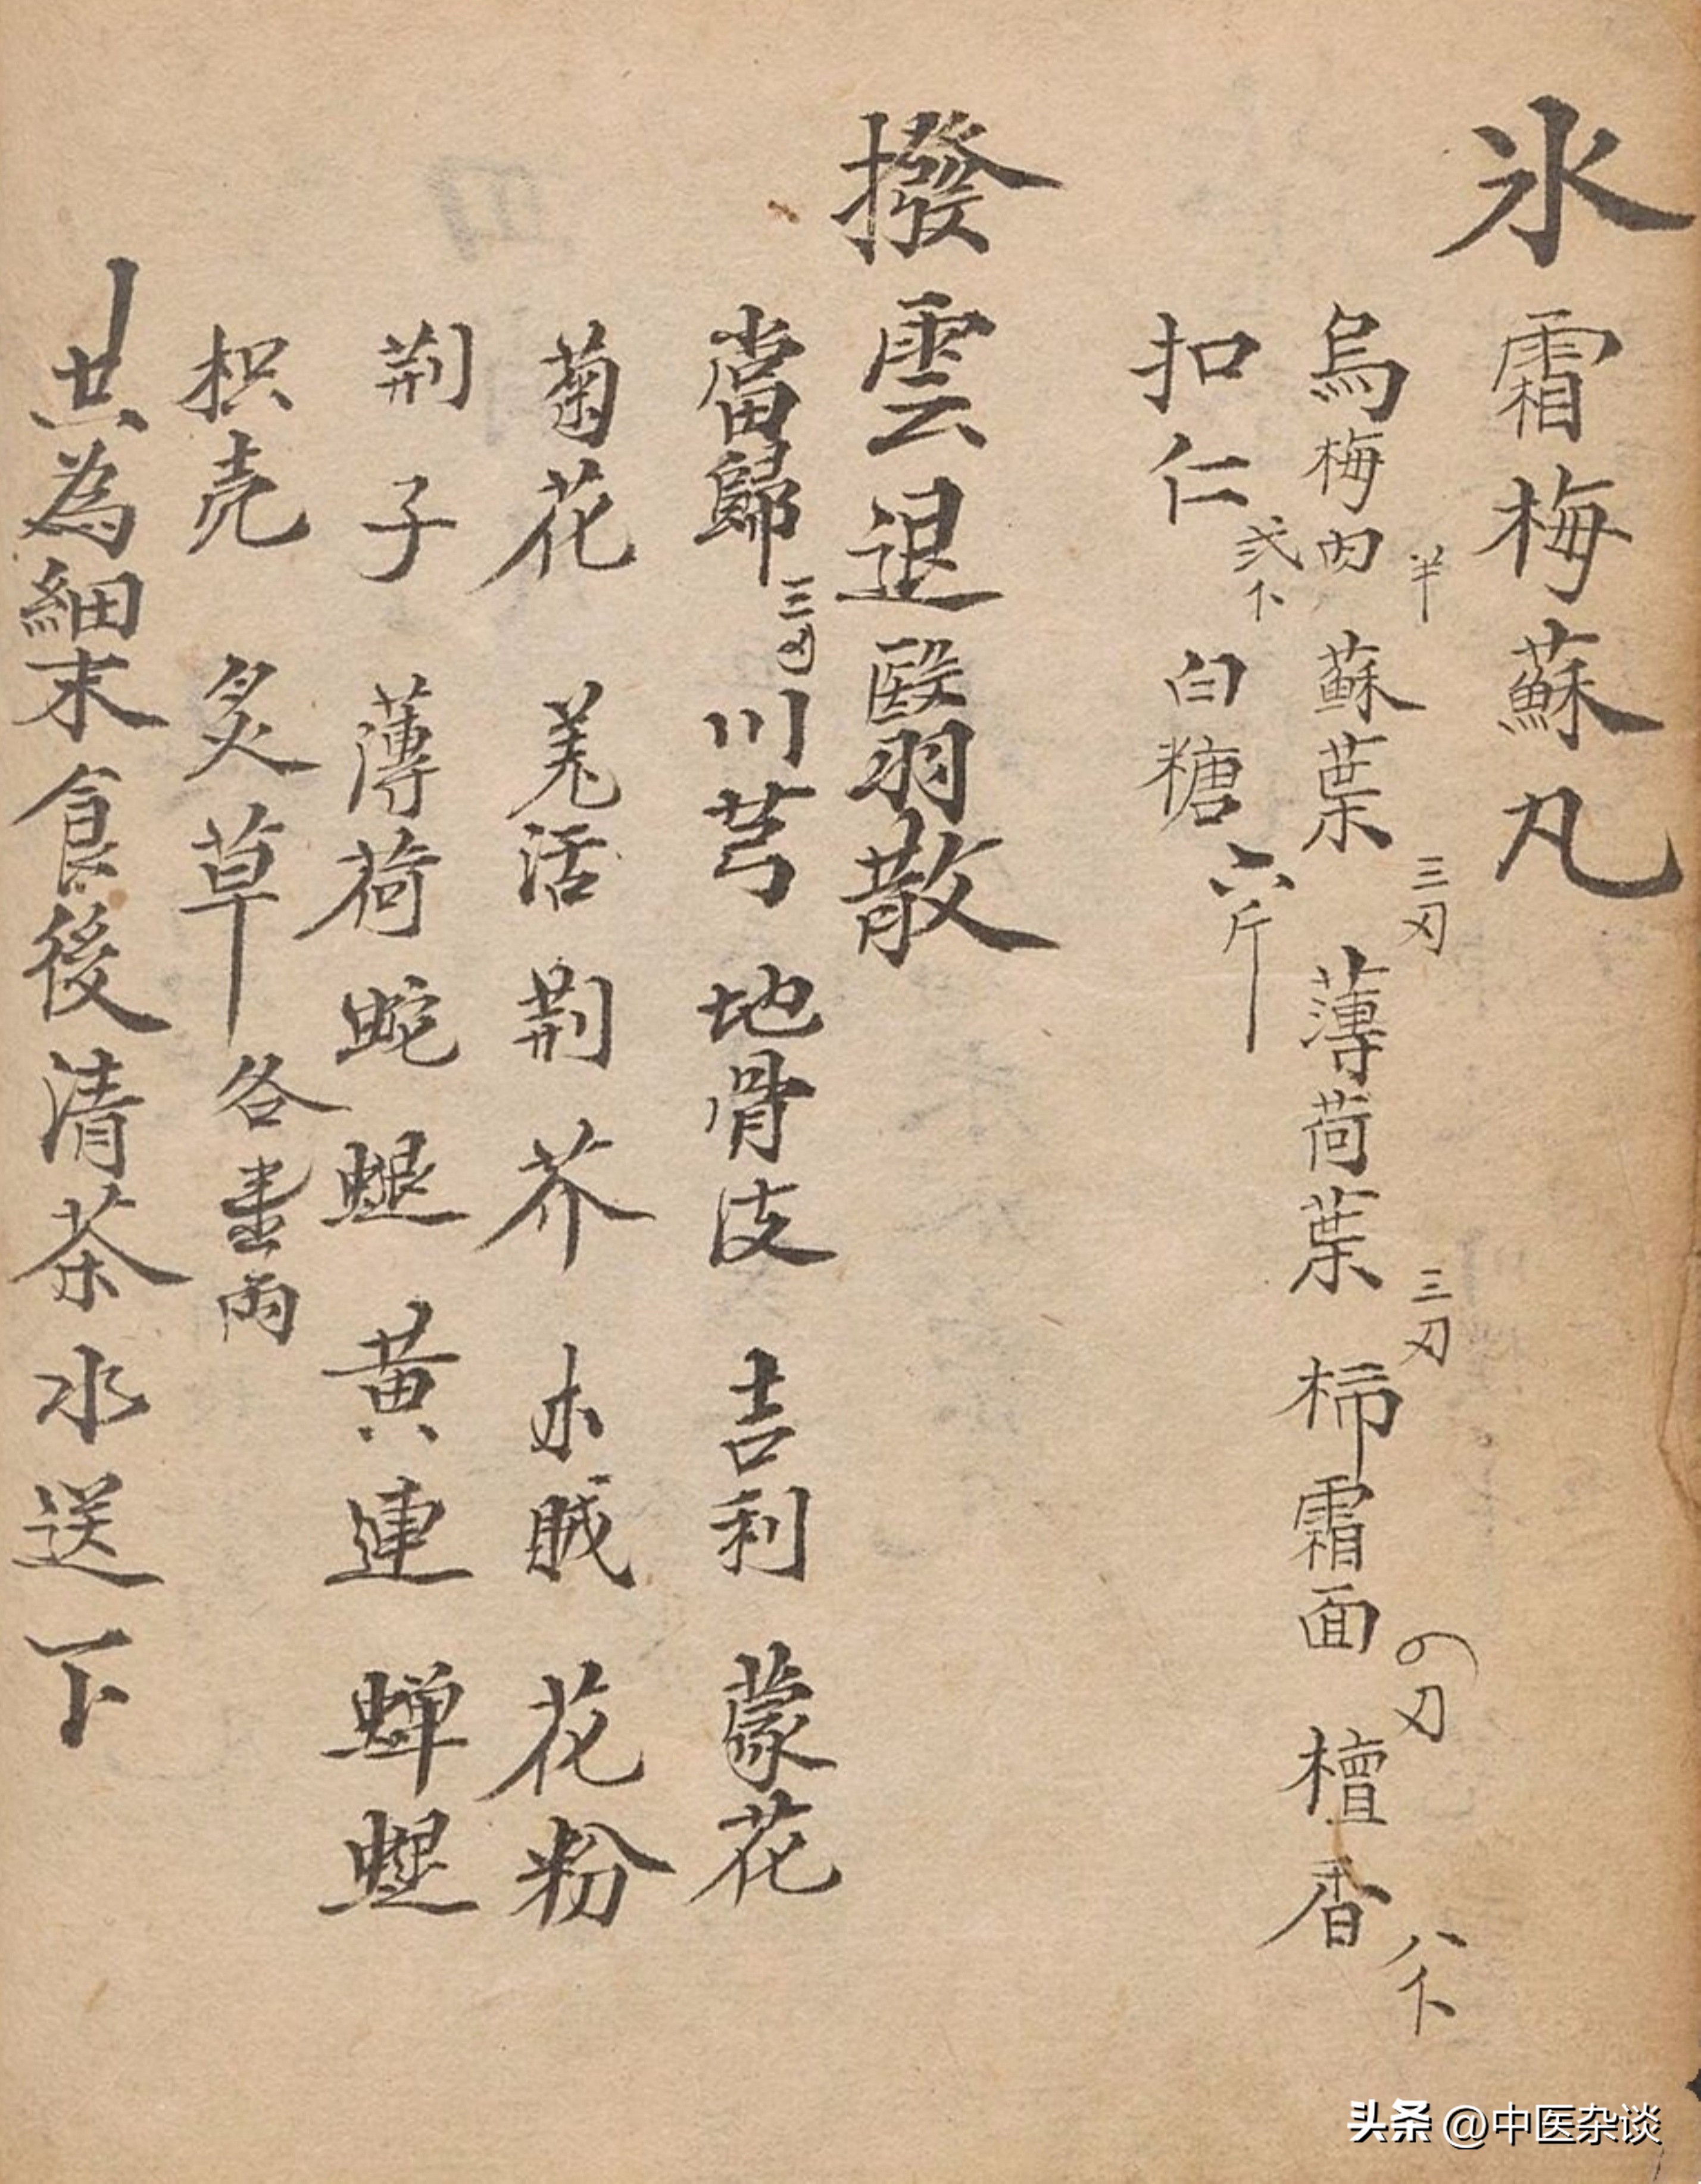 氷霜梅蘇凡
烏梅肉半蘇葉三刃薄荷葉三刃柿霜面刃檀香八卜
扣仁弍卜白糖六斤
撥雲退翳散
當歸三川芎地骨皮吉利蒙花
菊花羌活荆芥木賊花粉
荆子薄荷蛇蜕黄連蝉蜕
枳壳炙草各壹両
共為細末食後清茶水送下
头条 @中医杂谈